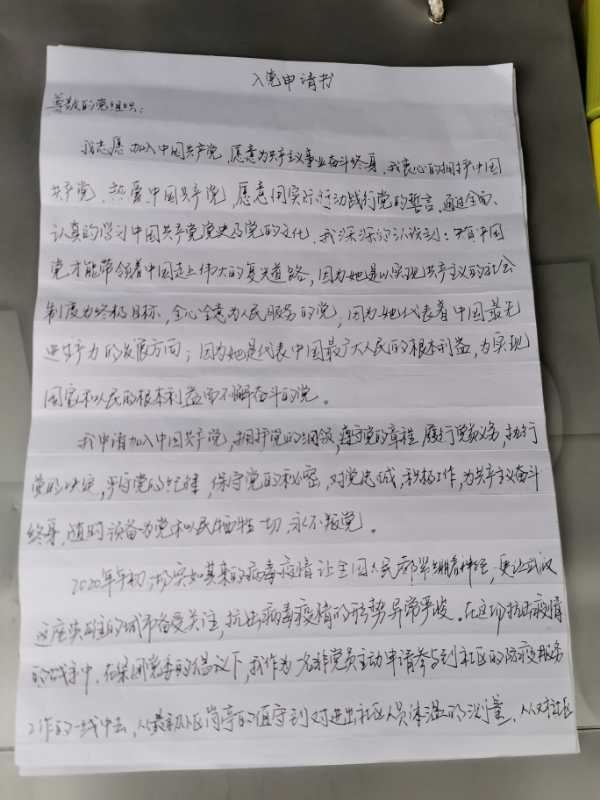 入党申请书
尊敬的党组织：
我志愿加入中国共产党，愿意为共产主义事业奋斗终身，我衷心的拥护中国
共产党，热爱中国共产党，愿意用实际行动践行党的誓言，通过全面、
认真的学习中国共产党党史及党的文化，我深深的认识到：只有中国
党才能带领着中国走上伟大的复兴道路，因为她是以实现共产主义的社会
制度为终极目标，全心全意为人民服务的党，因为她代表着中国最先
进生产力的发展方向；因为她是代表中国最广大人民的根本利益，为实现
国家和人民的根本利益而不懈奋斗的党。
我申请加入中国共产党，拥护党的纲领，遵守党的章程，履行党员义务，执行
党的决定，严守党的纪律，保守党的秘密，对党忠诚，积极工作，为共产主义奋斗
终身，随时准备为党和人民牺牲一切，永不叛党。
2020年年初，突如其来的病毒疫情让全国人民都紧绷着神经，更让武汉
这座英雄的城市备受关注，抗击病毒疫情的形势异常严峻。在这场抗击疫情
的战斗中，在集团党委的倡议下，我作为一名非党员主动申请参与到社区的防疫服务
工作的一线中去，从最初小区岗亭的值守到对进出社区人员体温的测量，从对社区